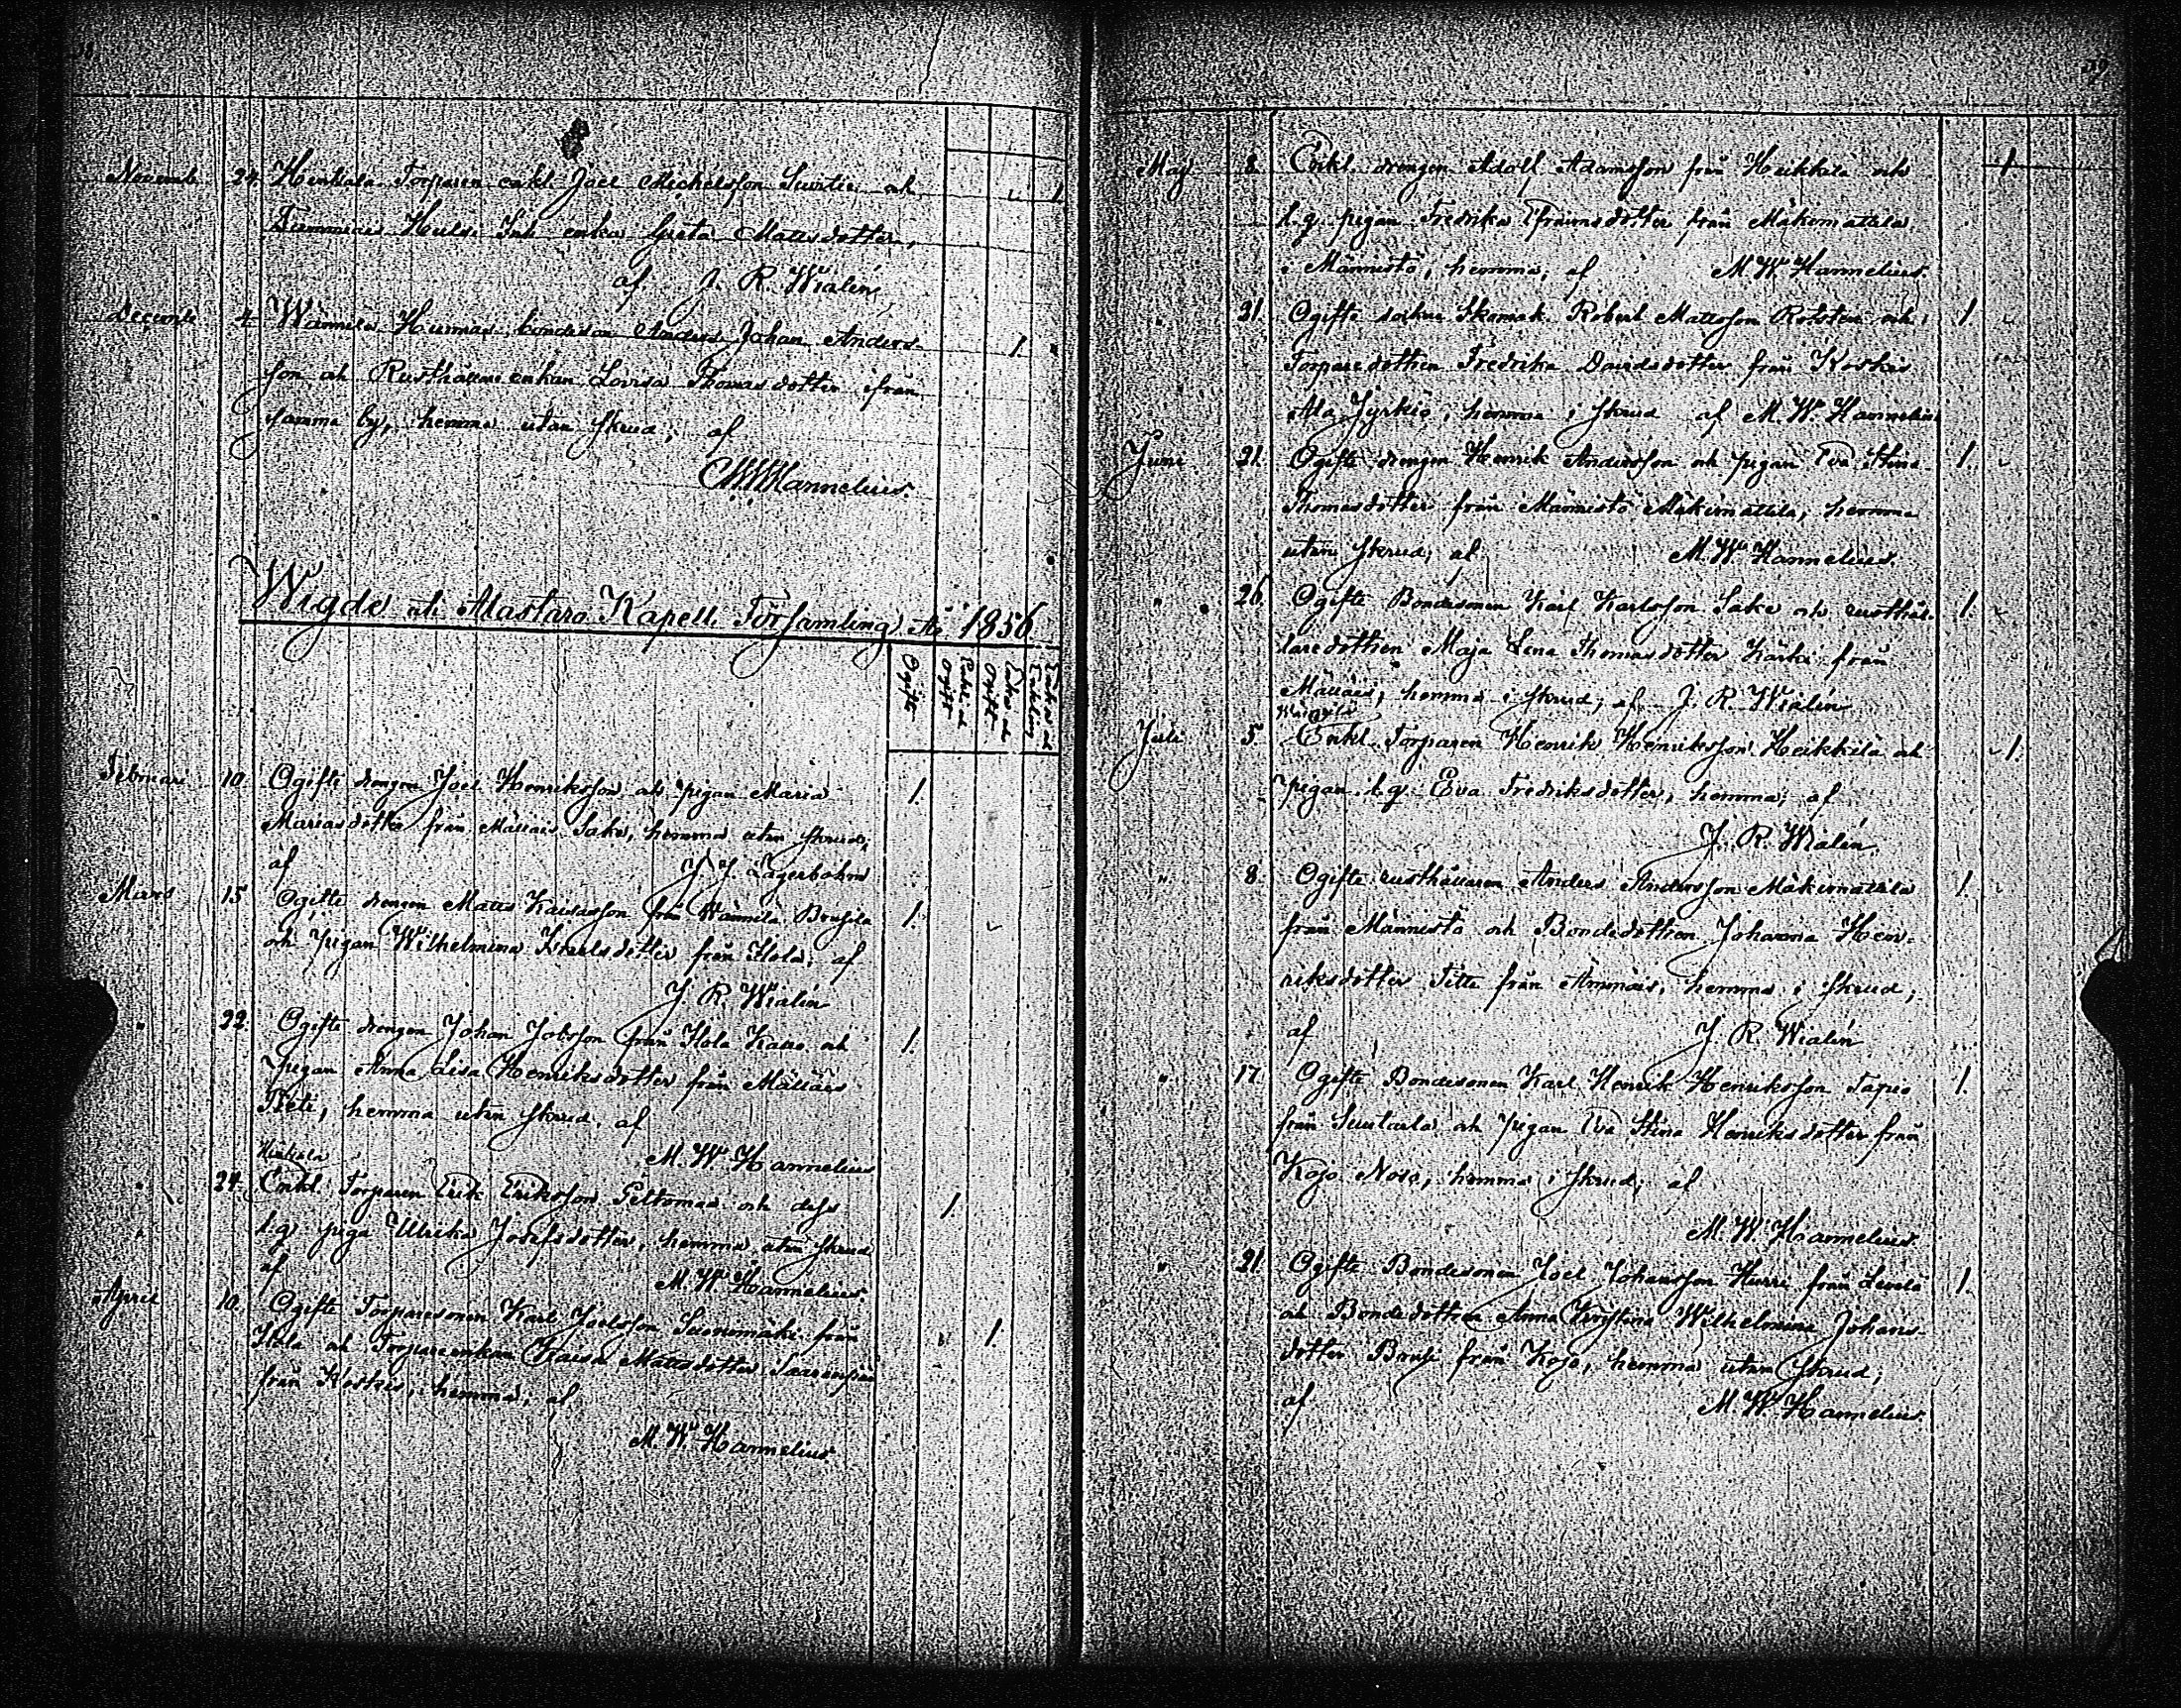 Novemb. 24. Hinkala Torparen enkl. Joel Michelsson Suntio och 1.
Tammiais Huldi Inh. enka Greta Mattsdotter,
af J. R. Wialén
Decemb. 4. Wännilä Hurnas bondeson Anders Johan Anders- 1.
son och Rusthållare enkan Lovisa Thomasdotter ifrån
samma by, hemma utan skrud; af
M W Hannelius.
Wigde uti Alastaro Kapell Församling År 1856
Ogifte
Enkl. och Ogift
Enka och Ogift
Enka och Enkling
Februari 10. Ogifte drengen Joel Henriksson och pigan Maria 1.
Mariasdotter från Mällais Sako, hemma utan skrud;
af J. J. Lagerbohm
Mars 15 Ogifte drengen Matts Kaisasson från Wännilä Brusila 1.
och pigan Wilhelmina Israelsdotter från Hola; af
J. R. Wialén
" 22. Ogifte drengen Johan Jobsson från Hola Kauo och 1.
pigan Anna Lisa Henriksdotter från Mällais
Pheti, hemma utan skrud, af
M. W. Hannelius
Hinkala
" 24. Enkl. Torparen Erik Eriksson Peltomaa och dess 1.
l.q. piga Ulrika Josefsdotter, hemma utan skrud
af M. W. Hannelius.
April 10. Ogifte Torparesonen Karl Joelsson Suonomäki från 1.
Hola och Torpareenkan Kaisa Mattsdotter Saarenpää
från Koskis, hemma; af
M. W. Hannelius
29
Maj 8. Enkl. drengen Adolf Adamsson från Heikkilä och 1
l.q. pigan Fredrika Efraimsdotter från Mäkimattila
i Männistö, hemma, af M. W. Hannelius.
" 31. Ogifte sockne Skomak. Robert Mattsson Rolsten och 1.
Torparedottren Fredrika Davidsdotter från Koskis
Ala Jyrkiö, hemma i skrud af M. W. Hannelius
Juni 21. Ogifte drengen Henrik Andersson och pigan Eva Stina 1.
Thomasdotter från Männistö Mäkimattila, hemma
utan skrud; af M. W. Hannelius.
" 26. Ogifte Bondesonen Karl Karlsson Sako och rusthål- 1.
laredottren Maja Lena Thomasdotter Kärki från
Mällais, hemma i skrud; af J. R. Wialén
Wännilä
Juli 5 Enkl. Torparen Henrik Henriksson Heikkilä och 1.
pigan l.q. Eva Fredriksdotter, hemma; af
J. R. Wialén.
" 8. Ogifte rusthållaren Anders Andersson Mäkimattila 1.
från Männistö och Bondedottren Johanna Hen-
riksdotter Titti från Ammais, hemma i skrud;
af J. R. Wialén
" 17. Ogifte Bondesonen Karl Henrik Henriksson Tapio 1.
från Suutarla och pigan Eva Stina Henriksdotter från
Kojo Nose, hemma i skrud; af
M. W. Hannelius.
" 21. Ogifte Bondesonen Joel Johansson Hurri från Leivilä 1.
och Bondedottren Anna Kristina Wilhelmina Johans-
dotter Brusi från Kojo, hemma utan skrud;
af M. W. Hannelius.